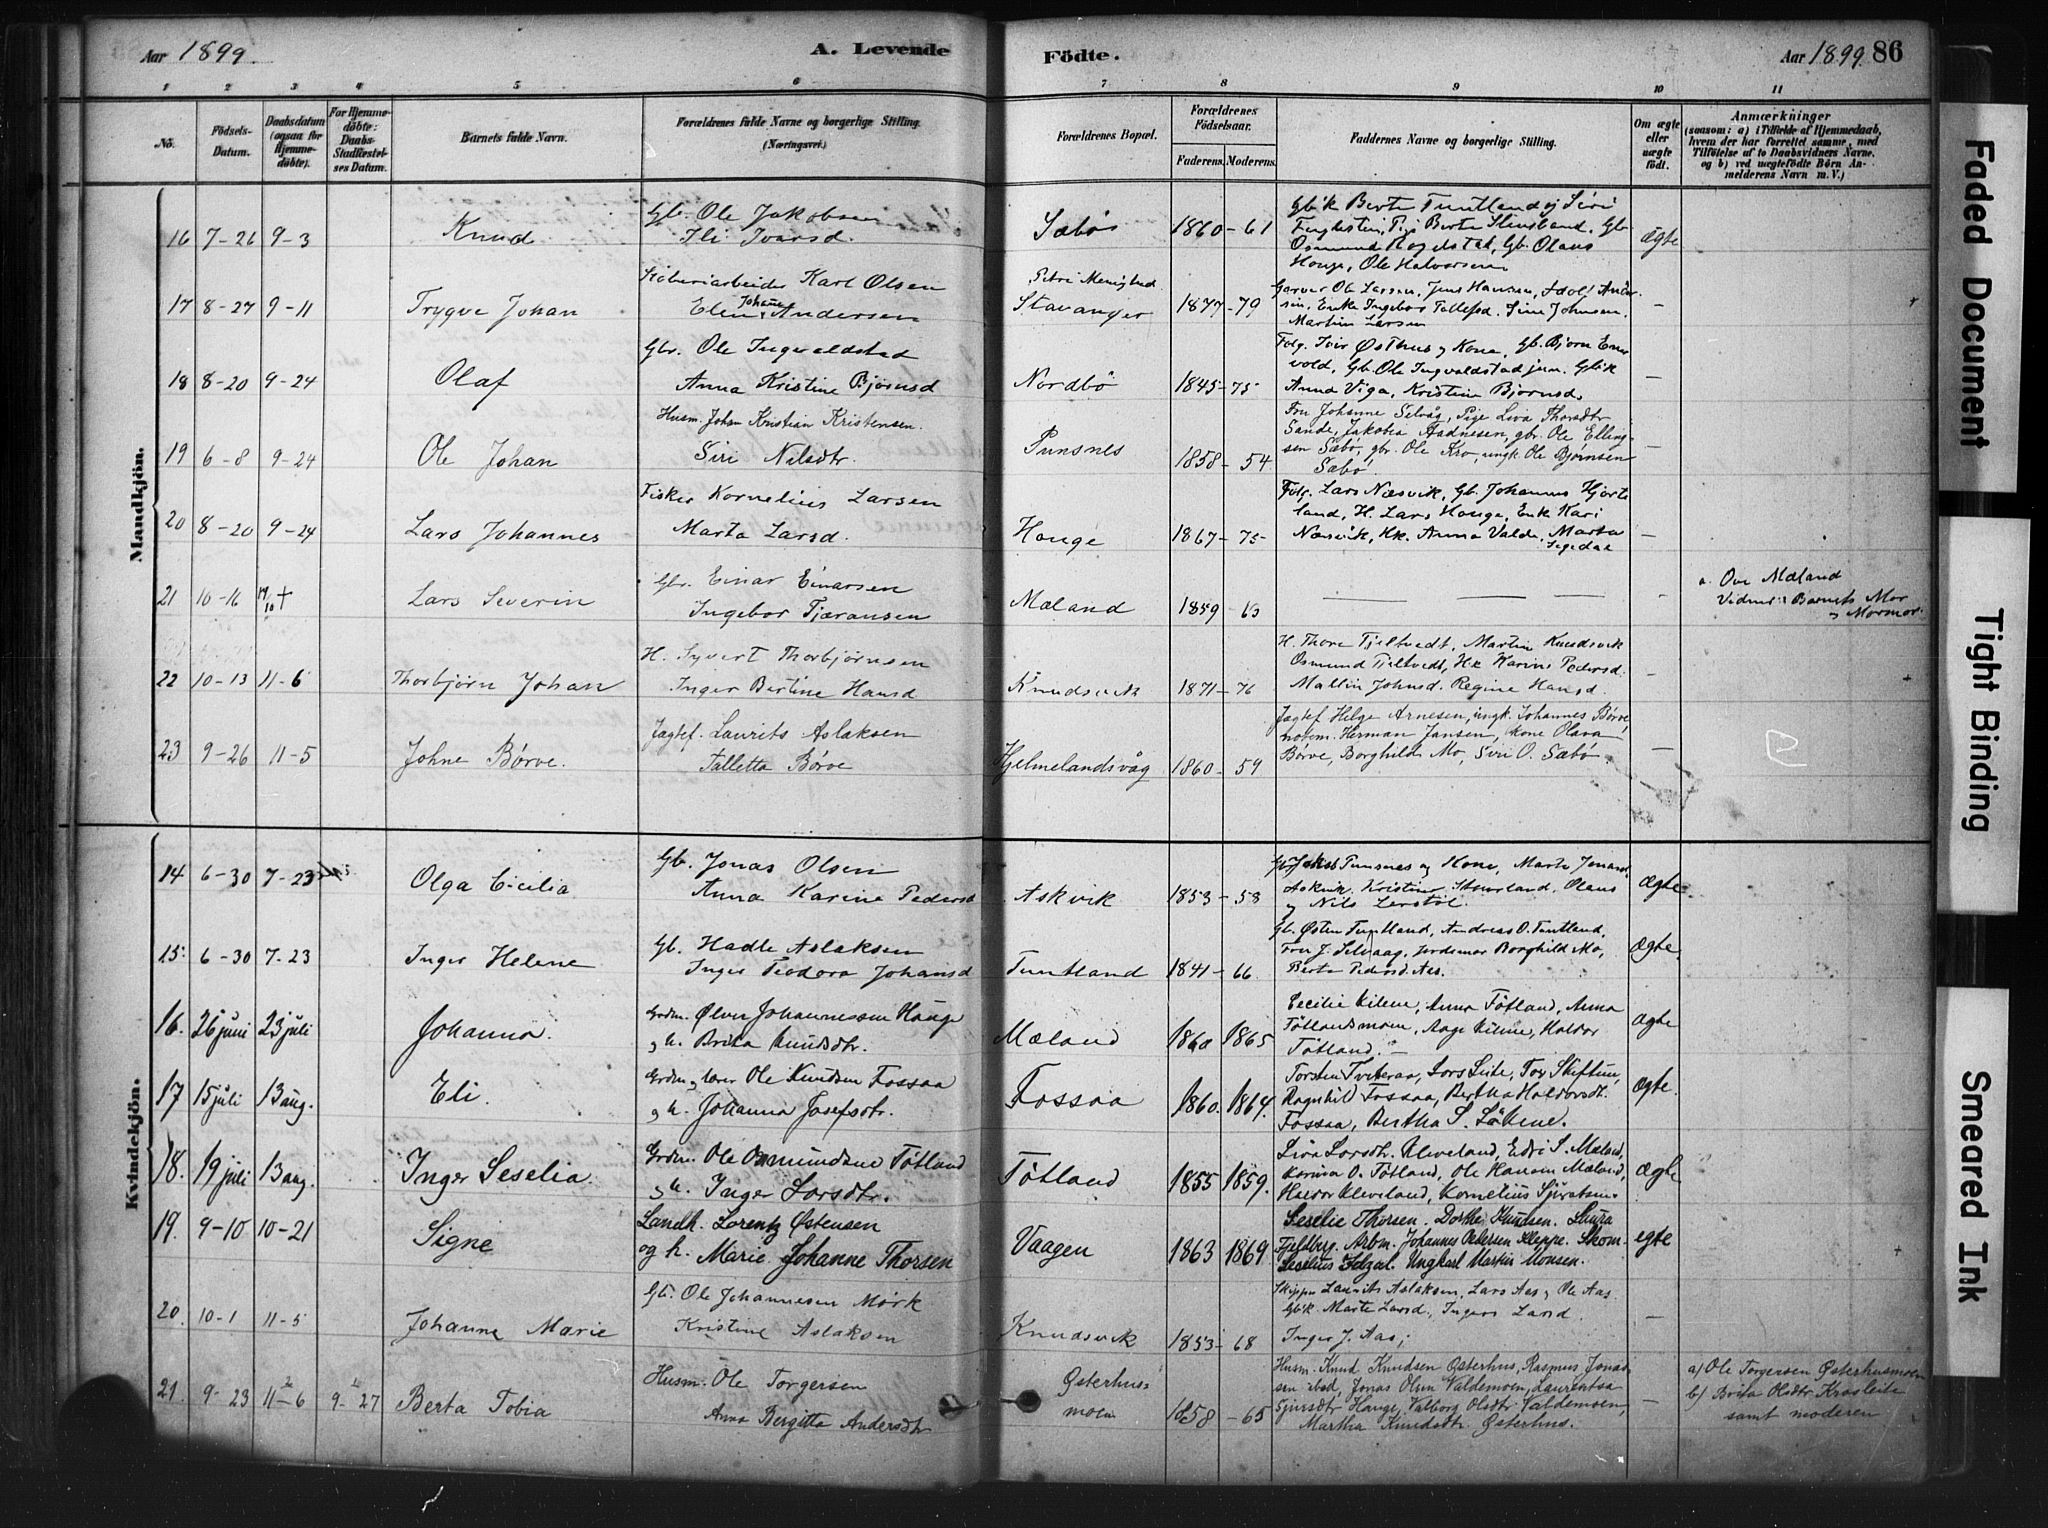 Aar 1899. A. Levende
1 2 3 4 5 6
No. Födsels-Datum. Daabsdatum (ogsaa for Hjemmedöbte). For Hjemmedöbte: Daabs-Stadfæstelses Datum. Barnets fulde Navn. Forældrenes fulde Navne og borgerlige Stilling. (Næringsvei.)
Födte. Aar 1899. 86
7 8 9 10 11
Forældrenes Bopæl. Forældrenes Födselsaar. Faderens. Moderens. Faddernes Navne og borgerlige Stilling. Om ægte eller uægte födt. Anmærkninger
(saasom: a) i Tilfælde af Hjemmedaab,
hvem der har forrettet samme, med
Tilföielse af to Daabsvidners Navne,
og b) ved uægtefödte Börn Anmelderens Navn m. V.)
Mandkjön.
16 7-26 9-3 Knud Gb. Ole Jakobsen
Ivarsd.
Sæbö 1860-61 ægte
Osmund Gb. Olaus
Houge, Ole Halvorsen
17 8-27 9-11 Trygve Johan Karl Olsen
Elen Johanne Andersen
Stavanger 1877-79 —
Garver Ole Larsen, Jens Hansen,
Enke Ingebor Tallefsd.
Martin Larsen
18 8-20 9-24 Olaf Gbr. Ole Ingvaldstad
Anna Kristine Bjørnsd
Nordbö 1845-75 —
Folg. Iver Østhus og Kone, Gb. Bjørn
vold, Gb. Ole Ingvaldstad jun. Gbk
Anna Viga, Kristine Bjørnsd.
19 6-8 9-24 Ole Johan Husm. Johan Kristian Kristensen.
Siri Nilsdtr.
Punsnes 1858-54 —
Fru Johanne Selvåg, Pige Liva Thorsdtr
Sande, Jakobia Aadnesen, gbr. Ole Elling-
sen Sæbø, gbr. Ole Kro, ungk. Ole Bjørnsen
Sæbø.
20 8-20 9-24 Lars Johannes Fisker Kornelius Larsen
Marta Larsd.
Houge 1867-75 —
Folg. Lars Næsvik, Gb. Johannes Hjorte
land, H. Lars Houge, Enk. Kari
Næsvik, Kk. Anna Valde, Marta
21 10-16 19/10 † Lars Severin Gbr. Einar Einarsen
Ingebor Tjæransen
Mæland 1859-63 — — —
a. Ove Mæland
Vidner: Barnets Mor
og Mormor.
22 10-13 11-6 Thorbjørn Johan H. Syvert Thorbjørnsen
Inger Bertine Hansd
Knudsvik 1871-76 —
H. Thore Tjeltvedt, Martin Knudsvik
Osmund Tjeltvedt, Hk Karine Pedersd.
Mallin Johnsd. Regine Hansd.
23 9-26 11-5 Johne Børve. Jagtef. Laurits Aslaksen
Talletta Børve
Hjelmelandsvåg 1860-59 —
Jagtef Helge Arnesen, ungk. Johannes Børve,
notem. Herman Jansen, kone Olava
Børve, Borghild Mo, Siri O. Sæbø.
Kvindekjön.
14 6-30 7-23 Olga Cicilia Gb. Jonas Olsen
Anna Karine Pedersd
Askvik 1853-58 ægte
og Kone, Marta Jonasd.
Askvik. Kristine Olaus
og Nils
15 6-30 7-23 Inger Helene Gb. Hadle Aslaksen
Inger Teodora Johansd
Tuntland 1841-66 ægte
Gb. Østen Tuntland, Andreas O. Tuntland,
Fru J. Selvaag, Jordemor Borghild Mo,
Berta Pedersd. Aas.
16. 26 juni 23 juli Johanna. Grdm. Ølver Johannessen Hauge
og h. Brita Knudsdtr.
Mæland 1860 1865 ægte
Cecilie Kilene, Anna Føtland, Anna
Føtlandsmoen, Aage Kilene, Haldor
Tøtland. —
17 15 juli 13 aug. Eli. Grdm. og lærer Ole Knudsen Fossaa
og h. Johanna Josefsdtr.
Fossaa 1860. 1864. ægte
Torsten Tviteraa, Lars Leite, Tor Skiftun,
Ragnhild Fossaa, Bertha Haldorsdtr.
Fossaa, Bertha S. Løkene.
18. 19 juli 13 aug. Inger Seselia. Grdm. Ole Osmundsen Tøtland
og h. Inger Larsdtr.
Tøtland 1855 1859. ægte
Liva Larsdtr. Kleveland, Edri S. Mæland,
Karina O. Tøtland, Ole Hansen Mæland,
Haldor Kleveland, Kornelius
19. 9-10 10-21 Signe Landh. Lorentz Østensen
og h. Marie Johanne Thorsen
Vaagen 1863 1869 egte
Seselie Thorsen. Dorthe Knudsen. Laura
Fjeldberg. Arbm. Johannes Pedersen Kleppe. Skom.
Ungkarl Martin Monsen.
20. 10-1 11-5 Johanne Marie Gb. Ole Johannesen Mørk
Kristine Aslaksen
Knudsvik 1853-68 —
Skipper Laurits Aslaksen, Lars Aas og Ole Aas
Gbk. Marte Larsd, Inger Larsd.
Inger J. Aas;
21. 9-23 11-6 9-27 Berta Tobia Husm. Ole Torgersen
Anna Bergitta Andersdtr
Østerhus-
moen 1858-65 —
Husm. Knud Knudsen Østerhus, Rasmus Jonas-
sen ibid, Jonas Olsen Valdemoen, Laurentsa
Sjursdtr Hauge, Valborg Olsdtr Valdemoen,
Martha Knudsdtr Østerhus.
a) Ole Torgersen Østerhusmoen
b) Brita Olsdtr Krosleite
samt moderen
Faded Document
Tight Binding
Smeared Ink